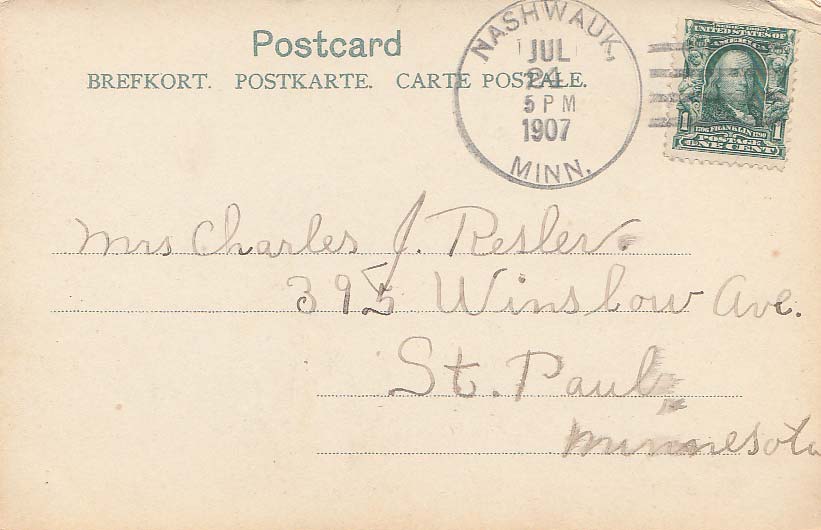 Postcard
BREFKORT. POSTKARTE. CARTE POSTALE.
NASHWAUK,
JUL
24
5 PM
1907
MINN.
UNITED STATES OF
AMERICA
1 1706 FRANKLIN 1790 1
POSTAGE
ONE CENT
Mrs Charles J. Resler.
395 Winslow Ave.
St. Paul
Minnesota